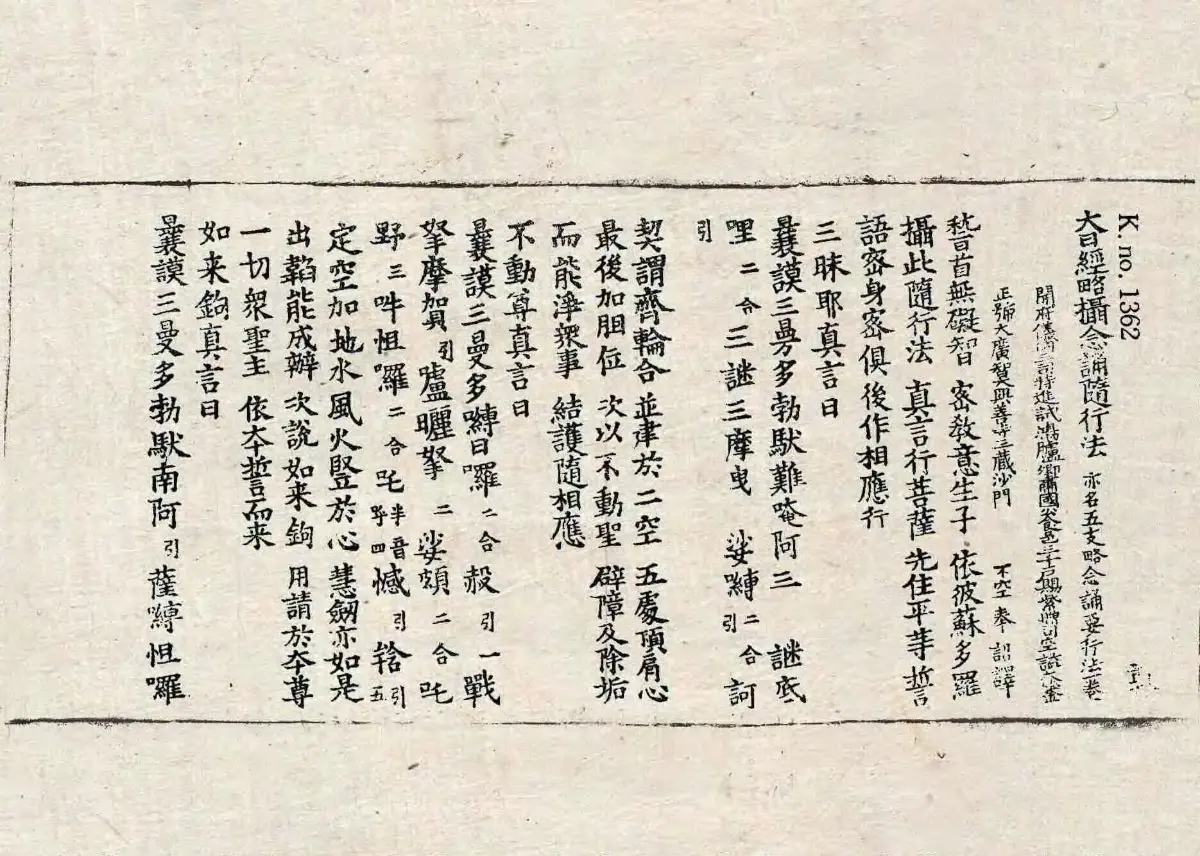 K. no. 1362
大日經略攝念誦隨行法 亦名五支略念誦要行法一卷
開府儀同三司特進試鴻臚卿肅國公食邑三千戶賜紫贈司空謚大鑒
正號大廣智大興善寺三藏沙門 不空奉 詔譯
稽首無礙智 密教意生子 依彼蘇多羅
攝此隨行法 真言行菩薩 先住平等誓
語密身密俱 後作相應行
三昧耶真言曰
曩謨三曼多勃馱難唵阿三 謎底
哩二合三謎三摩曳 娑嚩二合引訶
引
契謂齊輪合 並建於二空 五處頂肩心
最後加胭位 次以不動聖 辟障及除垢
而能淨衆事 結護隨相應
不動尊真言曰
曩謨三曼多嚩日囉二合赧引一戰
拏摩賀引嚧曬拏二娑頗二合吒
野三吽怛囉二合吒半音呼四憾引𤚥引五
定空加地水 風火竪於心 慧劒亦如是
出鞘能成辦 次說如来鉤 用請於夲尊
一切衆聖主 依夲誓而来
如来鉤真言曰
曩謨三曼多勃馱南阿引薩嚩怛囉